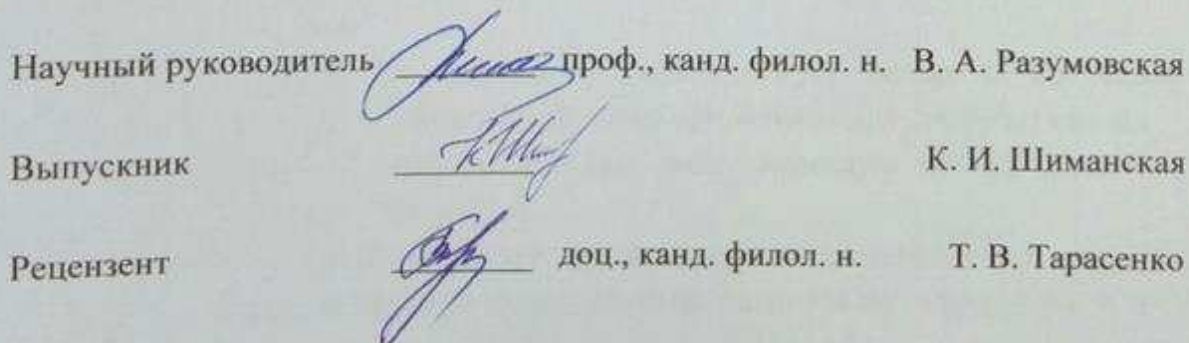 Научный руководитель проф., канд. филол. н. В. А. Разумовская
Выпускник К. И. Шиманская
Рецензент доц., канд. филол. н. Т. В. Тарасенко